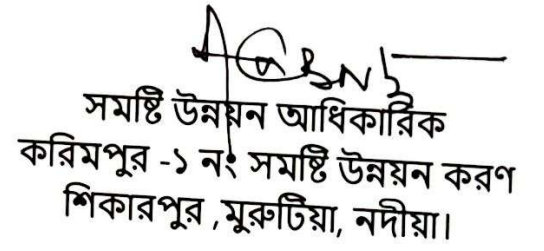 সমষ্টি উন্নয়ন আধিকারিক
করিমপুর -১ নং সমষ্টি উন্নয়ন করণ
শিকারপুর ,মুরুটিয়া, নদীয়া।